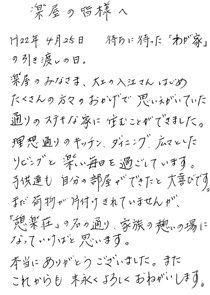 楽屋の皆様へ
H22年4月25日 待ちに待った「わが家」
の引き渡しの日。
楽屋のみなさま、大工の入江さんはじめ
たくさんの方々のおかげで思いえがいていた
通りのステキな家に住むことができました。
理想通りのキッチン、ダイニング、広々とした
リビングと楽しい毎日を過ごしています。
子供達も自分の部屋ができたと大喜びです。
まだ荷物が片付けきれていませんが、
「憩楽荘」の名の通り、家族の憩いの場に
なっていけばと思います。
本当にありがとうございました。また
これからも末永くよろしくおねがいします。